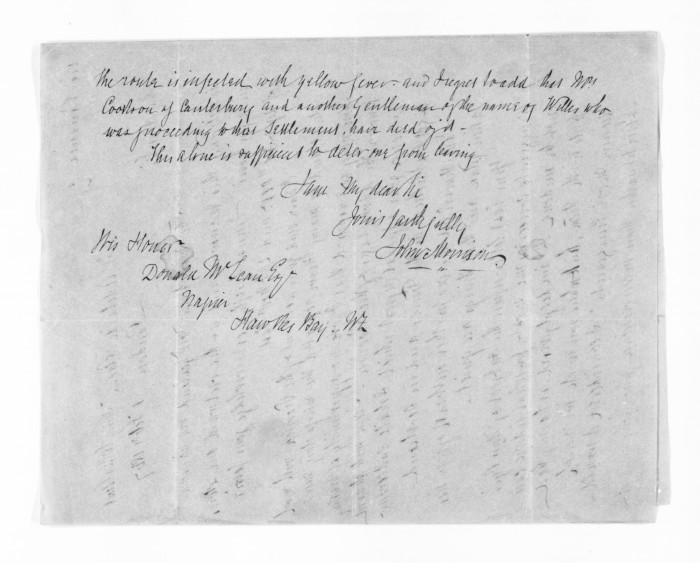 the route is infected with yellow fever - and I regret to add that Mrs
Cookson of Canterbury and another Gentleman of the name of who
was proceeding to that Settlement, have died of it -
This alone is sufficient to deter one from leaving
I am My dear Sir
Yours faithfully
John Morrison
His Honor
Donald McLean Esqr
Napier
Hawkes Bay - NZ